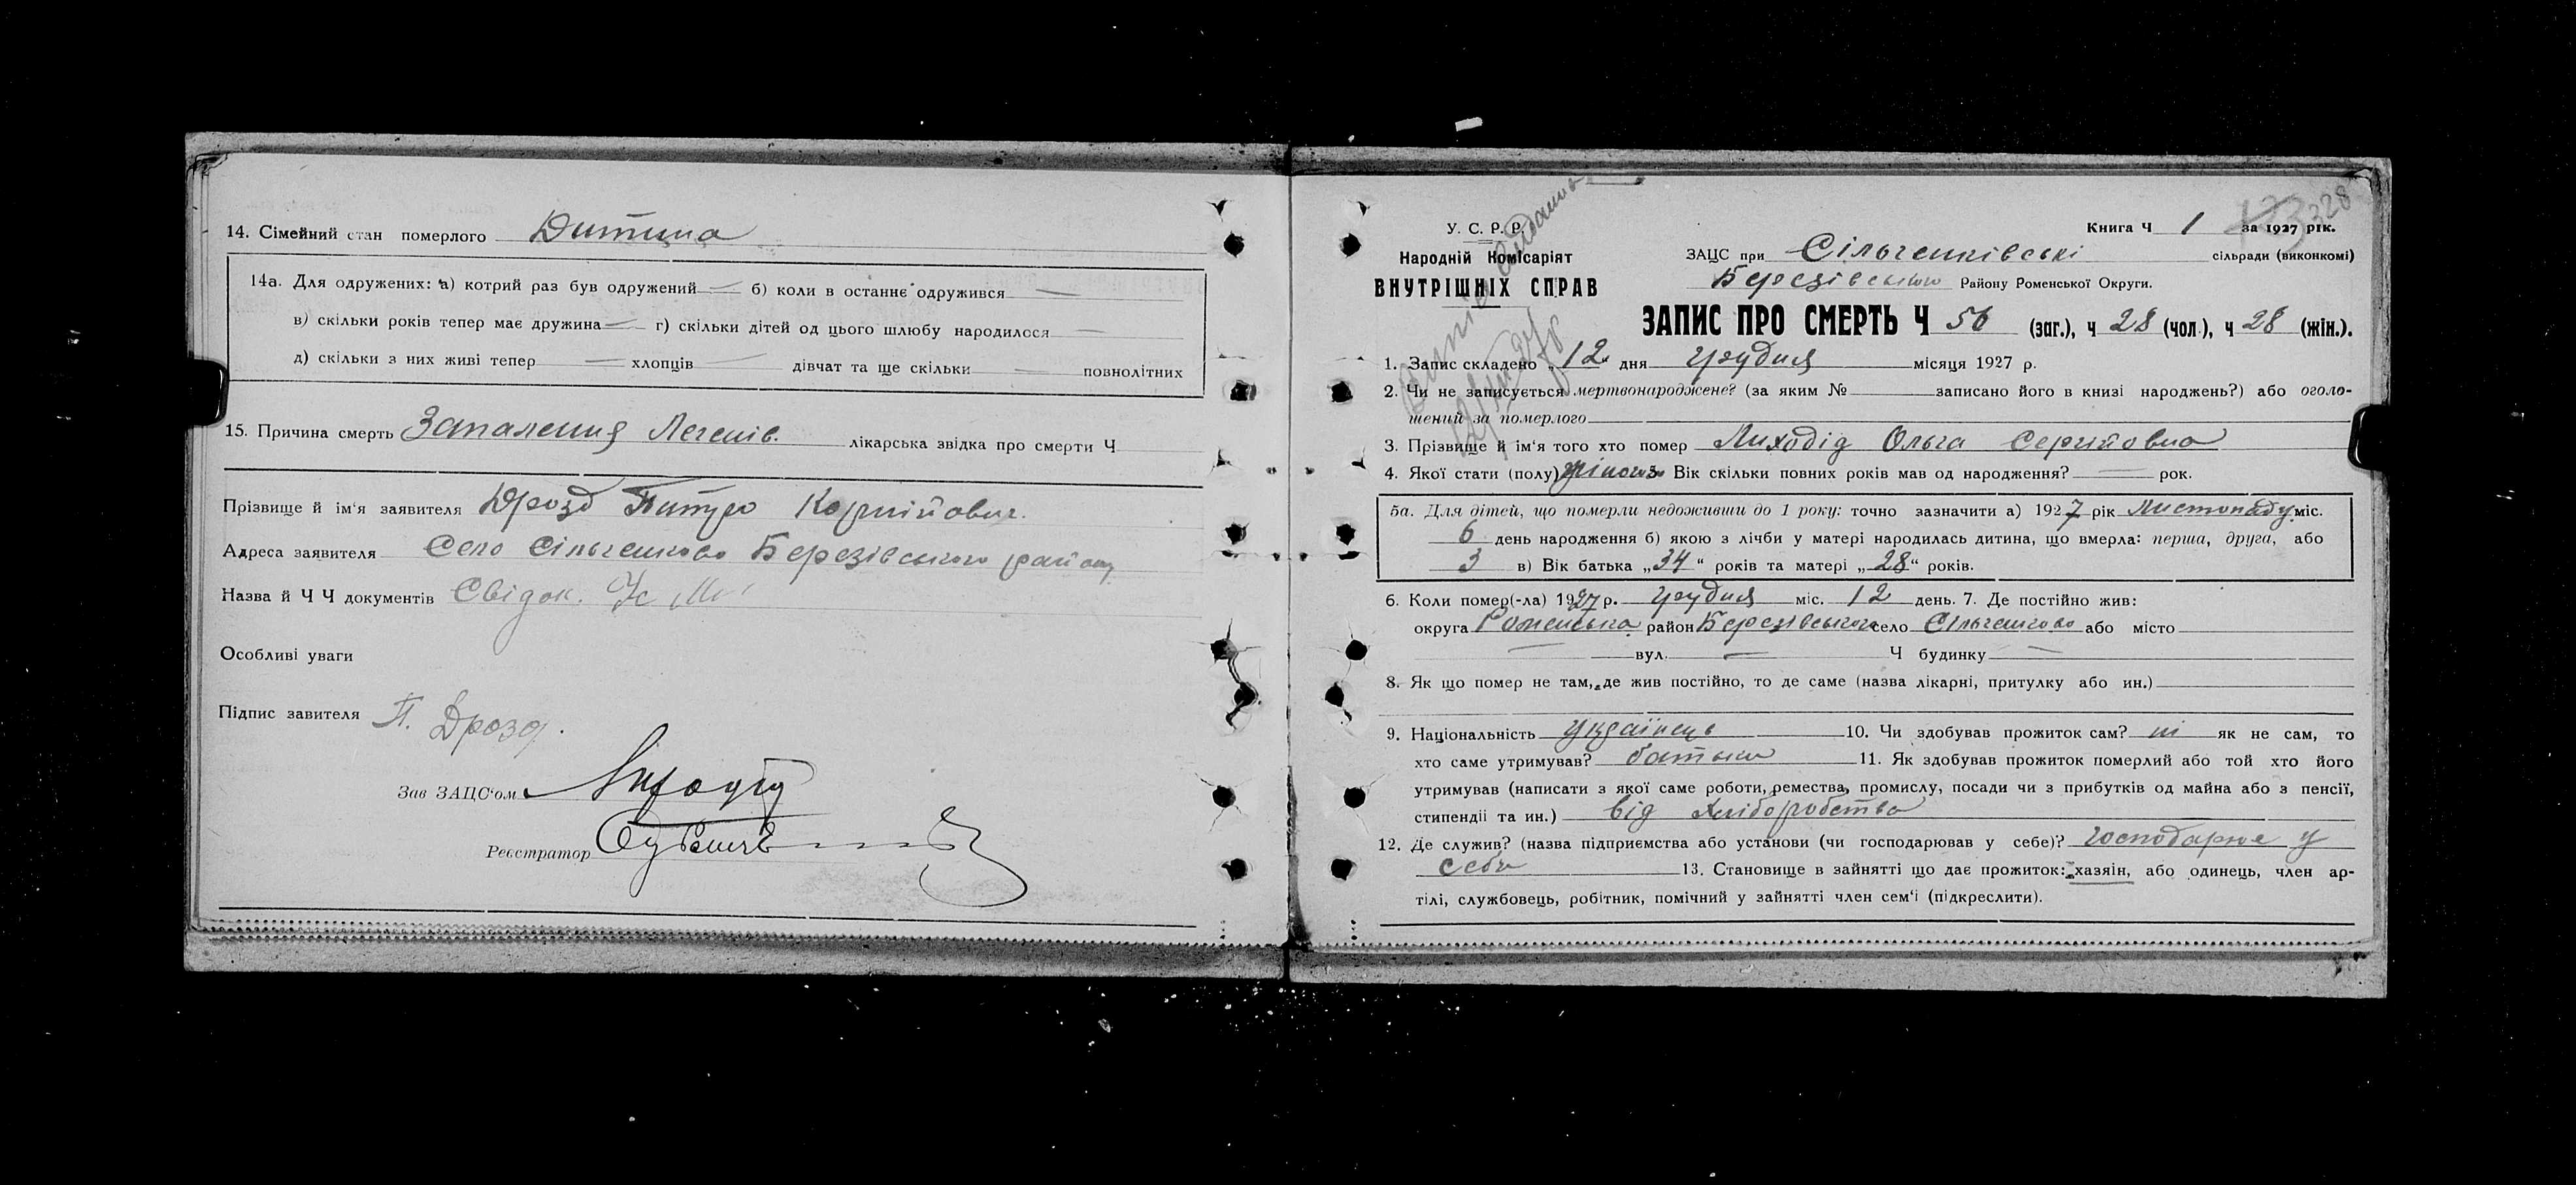 14. Сімейний стан померлого Дитина
14а. Для одружених: а) котрий раз був одружений — б) коли в останнє одружився —
в) скільки років тепер має дружина — г) скільки дітей од цього шлюбу народилося —
д) скільки з них живі тепер — хлопців — дівчат та ще скільки — повнолітних
15. Причина смерть Запалення Легенів. лікарська звідка про смерти Ч
Прізвище й ім'я заявителя Дрозд Питро Корнійович.
Адреса заявителя Село Сільченково Березівського району
Назва й Ч Ч документів Свідок.
Особливі уваги
Підпис завителя П. Дрозд.
Зав ЗАЦС'ом Лиходід
Реєстратор
328
У. С. Р. Р.
Книга Ч 1 за 1927 рік.
Народній Комісаріят
ВНУТРІШНІХ СПРАВ
ЗАЦС при Сільченківські сільради (виконкомі)
Березівського Району Роменської Округи.
ЗАПИС ПРО СМЕРТЬ Ч 56 (заг.), ч 28 (чол.), ч 28 (жін.).
1. Запис складено „12" дня грудня місяця 1927 р.
2. Чи не записується мертвонароджене? (за яким № записано його в книзі народжень?) або оголо-
шений за померлого
3. Прізвище й ім'я того хто помер Лиходід Ольга Сергиївна
4. Якої стати (полу) жіноча Вік скільки повних років мав од народження? — рок.
5а. Для дітей, що померли недоживши до 1 року: точно зазначити а) 1927 рік Листопаду міс.
6 день народження б) якою з лічби у матері народилась дитина, що вмерла: перша, друга, або
3 в) Вік батька „34" років та матері „28" років.
6. Коли помер(-ла) 1927 р. грудня міс. 12 день. 7. Де постійно жив:
округа Роменська район Березівського село Сільченково або місто
— вул. — Ч будинку —
8. Як що помер не там, де жив постійно, то де саме (назва лікарні, притулку або ин.)
9. Національність українець 10. Чи здобував прожиток сам? ні як не сам, то
хто саме утримував? батьки 11. Як здобував прожиток померлий або той хто його
утримував (написати з якої саме роботи, ремества, промислу, посади чи з прибутків од майна або з пенсії,
стипендії та ин.) від хліборобства
12. Де служив? (назва підприємства або установи (чи господарював у себе)? господарює у
себе 13. Становище в зайнятті що дає прожиток: хазяїн, або одинець, член ар-
тілі, службовець, робітник, помічний у зайнятті член сем'ї (підкреслити).